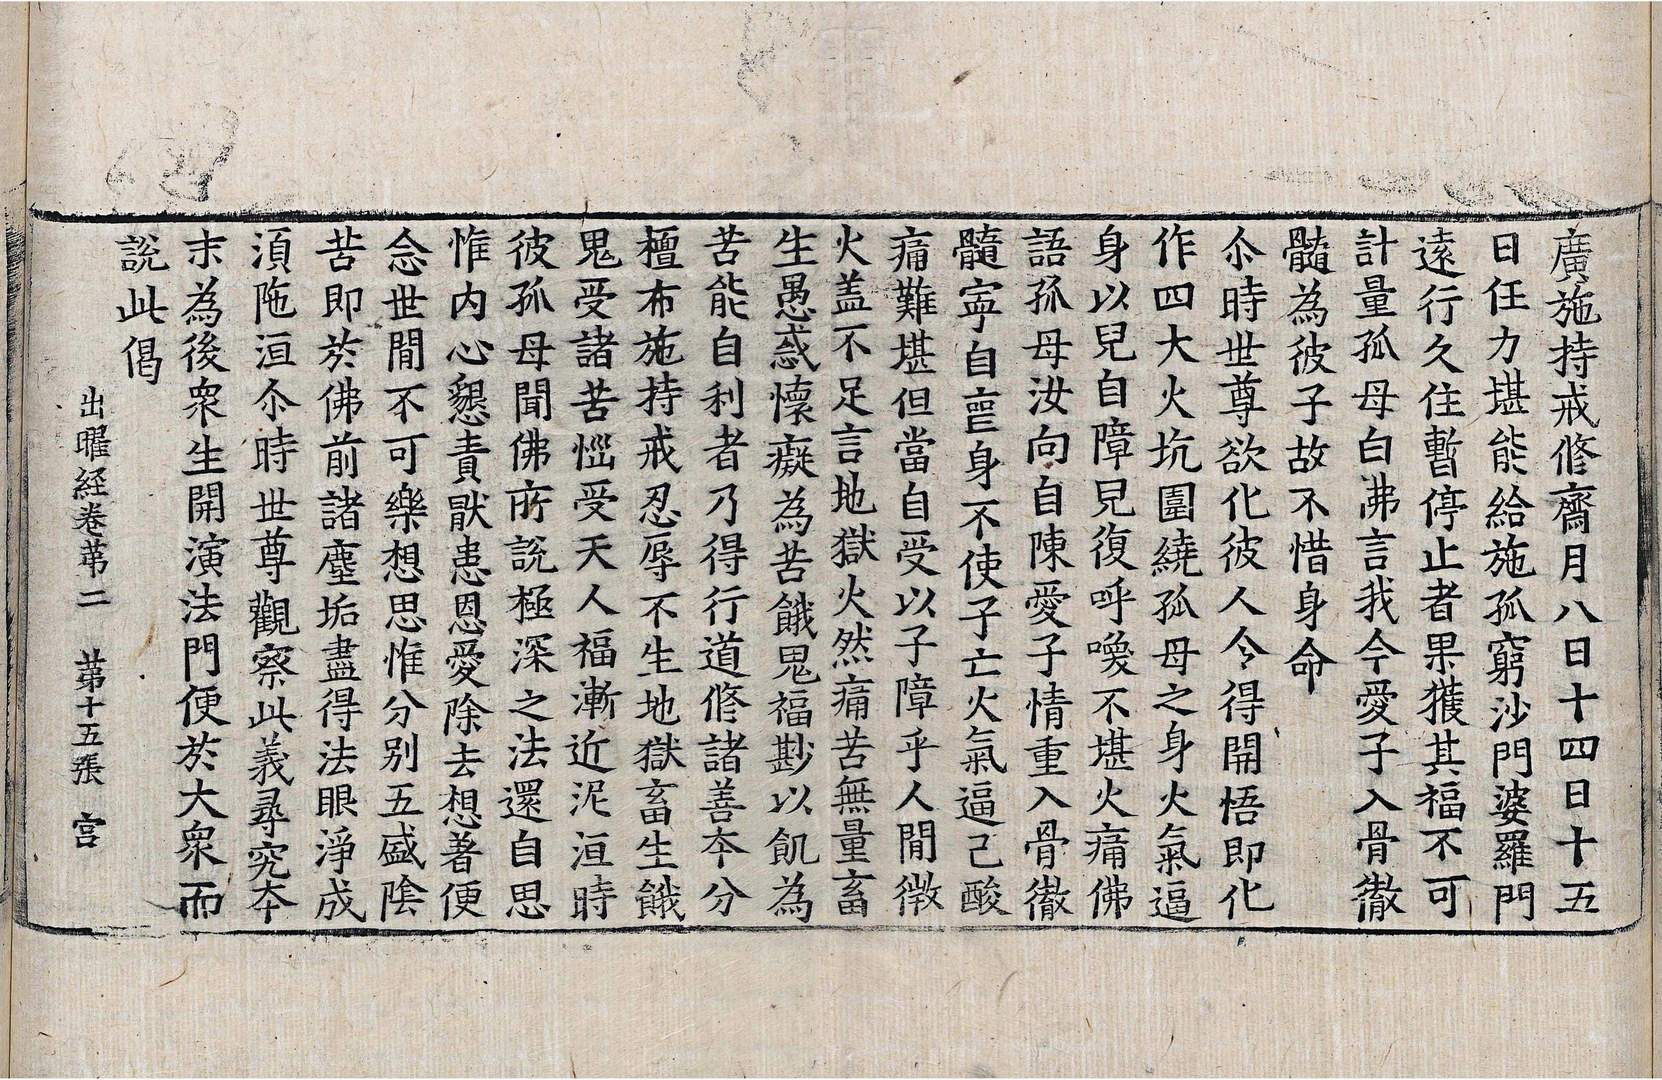 廣施持戒修齋月八日十四日十五
日任力堪能給施孤窮沙門婆羅門
遠行久住暫停止者果獲其福不可
計量孤母白佛言我今愛子入骨徹
髓為彼子故不惜身命
尒時世尊欲化彼人令得開悟即化
作四大火坑圍繞孤母之身火氣逼
身以兒自障兒復呼喚不堪火痛佛
語孤母汝向自陳愛子情重入骨徹
髓寧自喪身不使子亡火氣逼己酸
痛難堪但當自受以子障乎人間微
火盖不足言地獄火然痛苦無量畜
生愚惑懷癡為苦餓鬼福尠以飢為
苦能自利者乃得行道修諸善本分
檀布施持戒忍辱不生地獄畜生餓
鬼受諸苦惱受天人福漸近泥洹時
彼孤母聞佛所說極深之法還自思
惟内心懇責猒患恩愛除去想著便
念世間不可樂想思惟分別五盛陰
苦即於佛前諸塵垢盡得法眼淨成
湏陁洹尒時世尊觀察此義尋究本
末為後衆生開演法門便於大衆而
說此偈
出曜経卷苐二　苐十五張　宫